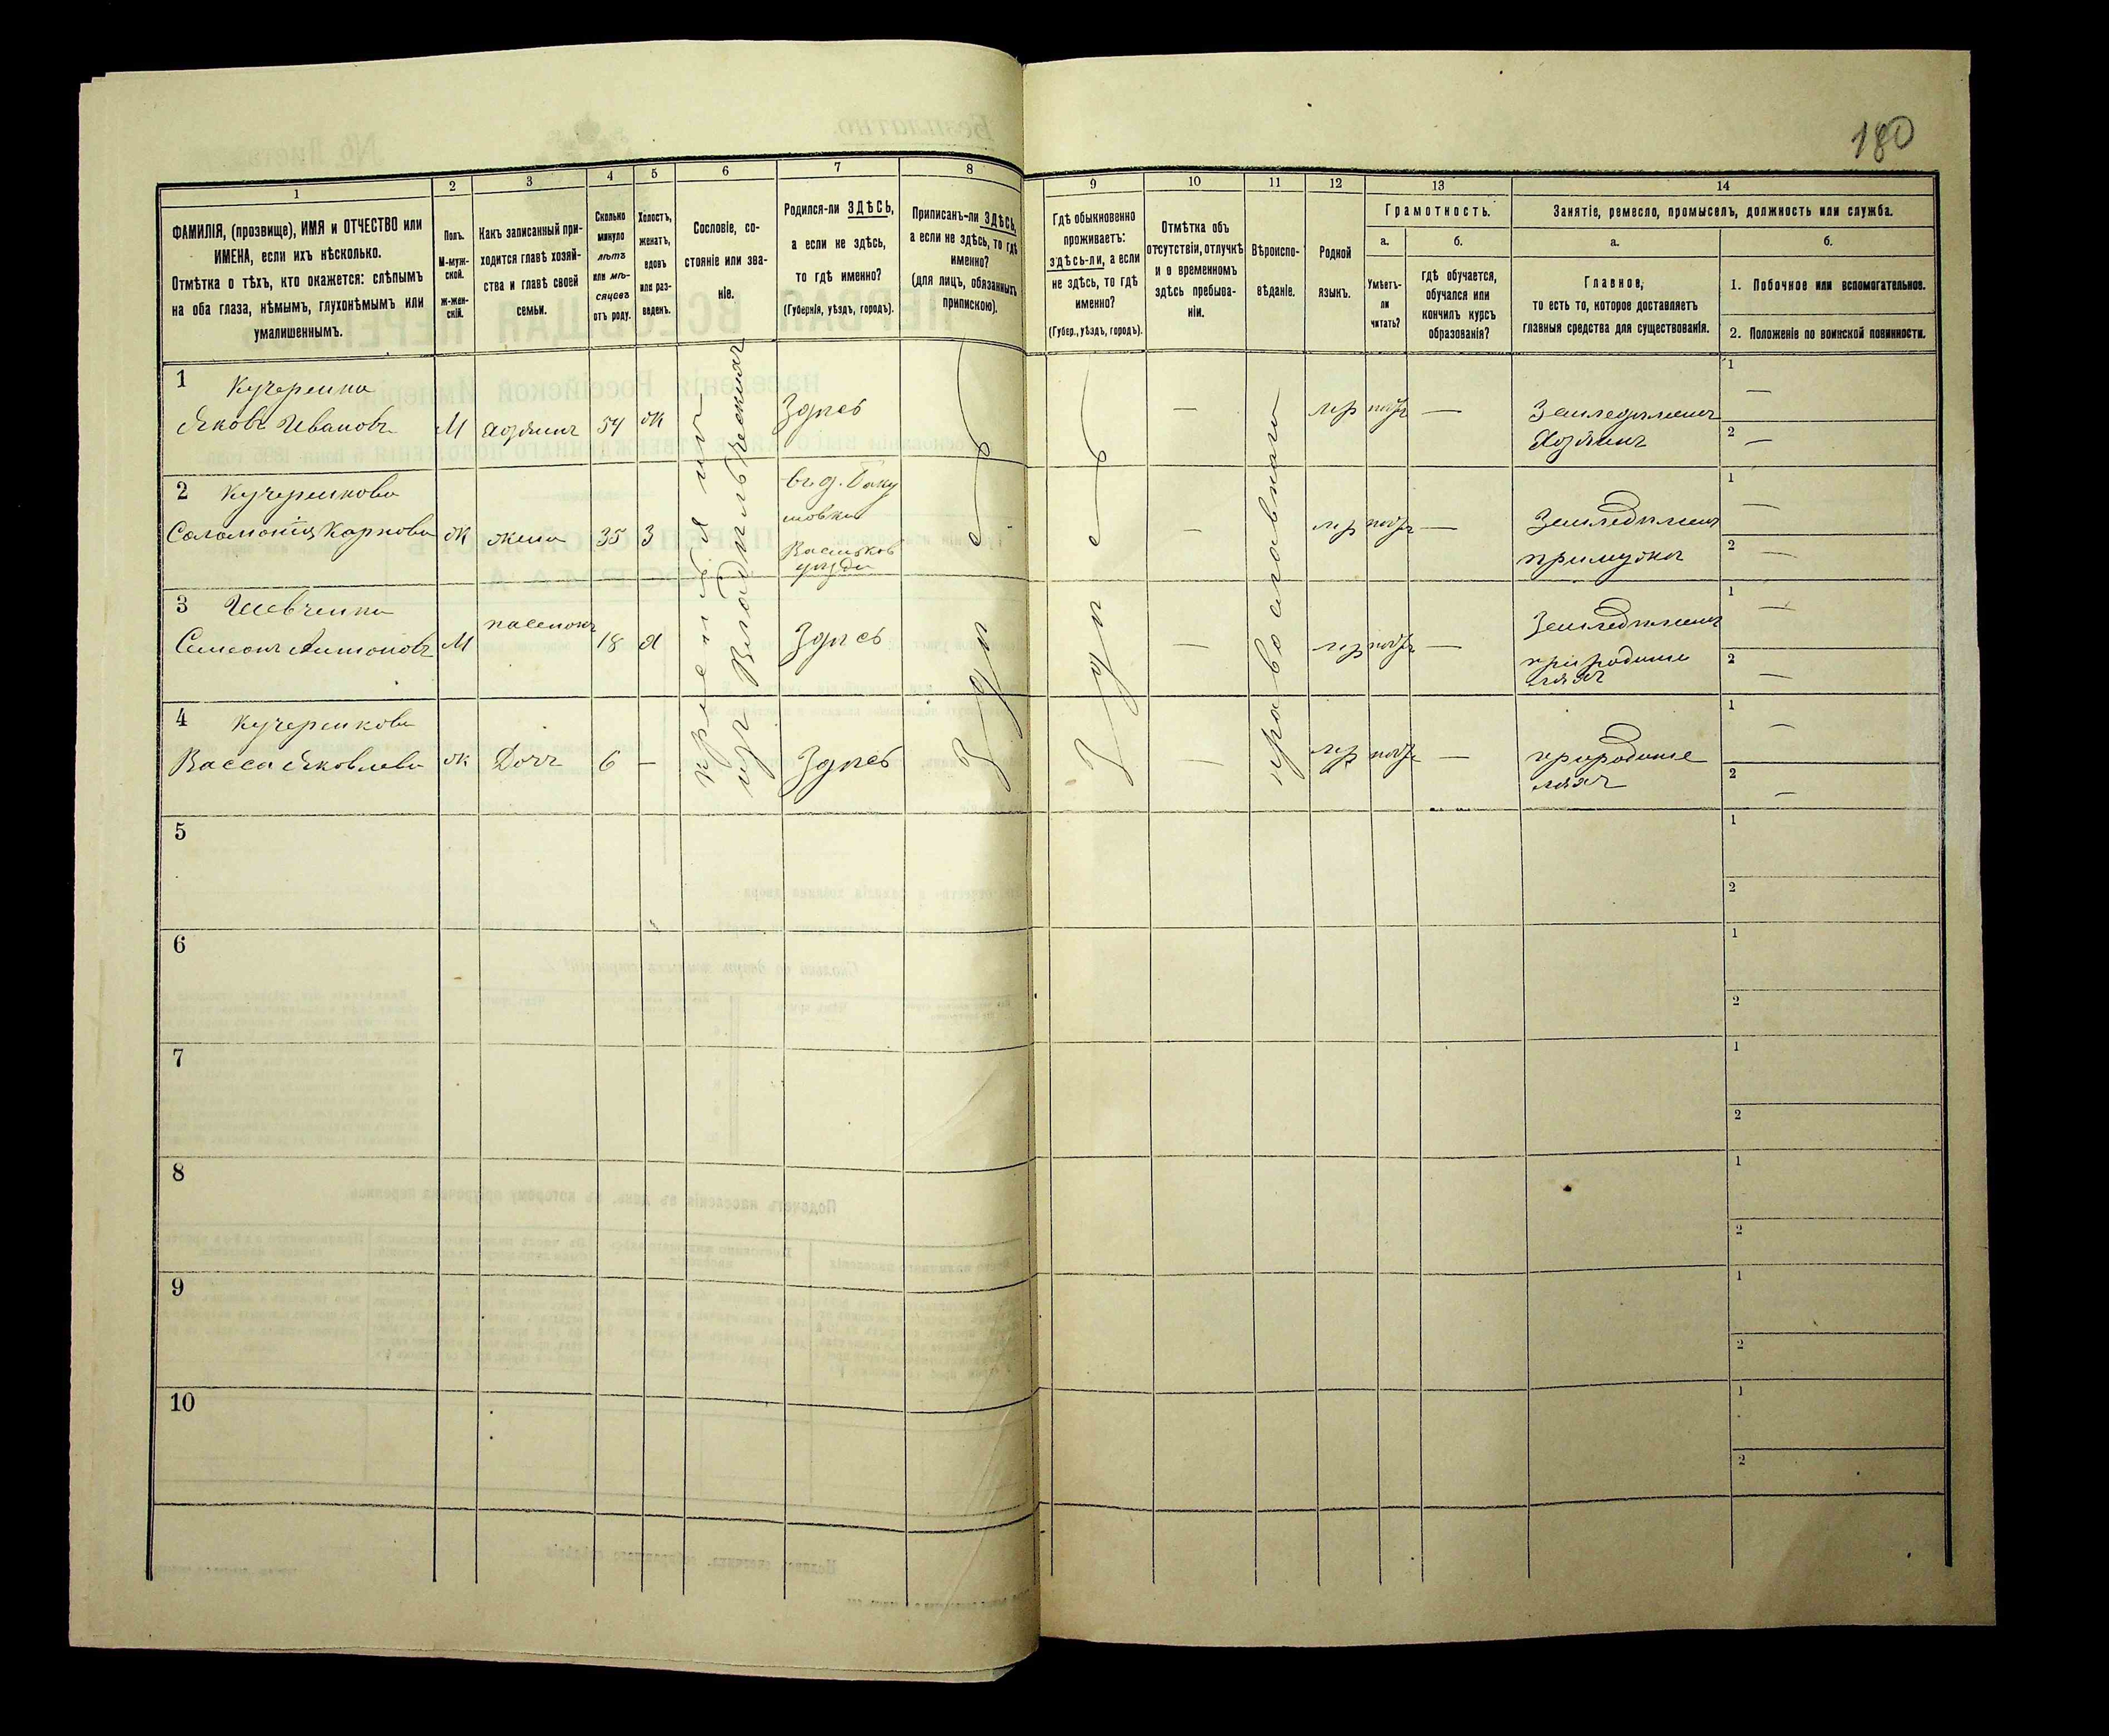 180
1
2
3
4
5
6
7
8
ФАМИЛІЯ, (прозвище), ИМЯ и ОТЧЕСТВО или
ИМЕНА, если ихъ нѣсколько.
Отмѣтка о тѣхъ, кто окажется: слѣпымъ
на оба глаза, нѣмымъ, глухонѣмымъ или
умалишеннымъ.
Полъ.
М-муж-
ской.
Ж-жен-
скій.
Какъ записанный при-
ходится главѣ хозяй-
ства и главѣ своей
семьи.
Сколько
минуло
лѣтъ
или мѣ-
сяцовъ
отъ роду.
Холостъ,
женатъ,
вдовъ
или раз-
веденъ.
Сословіе, со-
стояніе или зва-
ніе.
Родился-ли ЗДѢСЬ,
а если не здѣсь,
то гдѣ именно?
(Губернія, уѣздъ, городъ).
Приписанъ-ли ЗДѢСЬ,
а если не здѣсь, то гдѣ
именно?
(для лицъ, обязанныхъ
припискою).
9
10
11
12
13
14
Гдѣ обыкновенно
проживаетъ:
здѣсь-ли, а если
не здѣсь, то гдѣ
именно?
(Губер., уѣздъ, городъ).
Отмѣтка объ
отсутствіи, отлучкѣ
и о временномъ
здѣсь пребыва-
ніи.
Вѣроиспо-
вѣданіе.
Родной
языкъ.
Грамотность.
а.
б.
Умѣетъ-
ли
читать?
гдѣ обучается,
обучался или
кончилъ курсъ
образованія?
Занятіе, ремесло, промыселъ, должность или служба.
а.
б.
Главное,
то есть то, которое доставляетъ
главныя средства для существованія.
1. Побочное или вспомогательное.
2. Положеніе по воинской повинности.
1 Кучеренко
Яковъ Ивановъ М хозяинъ 54 ж Здѣсь — мр — Земледѣлецъ
Хозяинъ
1 —
2 —
2 Кучеренкова
Соломонія Карпова ж жена 35 З
въ д.
Васильков
уѣзда
— мр — Земледѣлецъ
при мужѣ
1 —
2 —
3 Шевченко
Симеонъ Антоновъ М пасынокъ 18 Х Здѣсь — мр — Земледѣлецъ
при родите
ляхъ
1 —
2 —
4 Кучеренкова
Васса Яковлева ж Дочь 6 — Здѣсь — мр — при родите
ляхъ
1 —
2 —
изъ Владѣльческихъ
Здѣсь
Здѣсь
православного
5
1
2
6
1
2
7
1
2
8
1
2
9
1
2
10
1
2